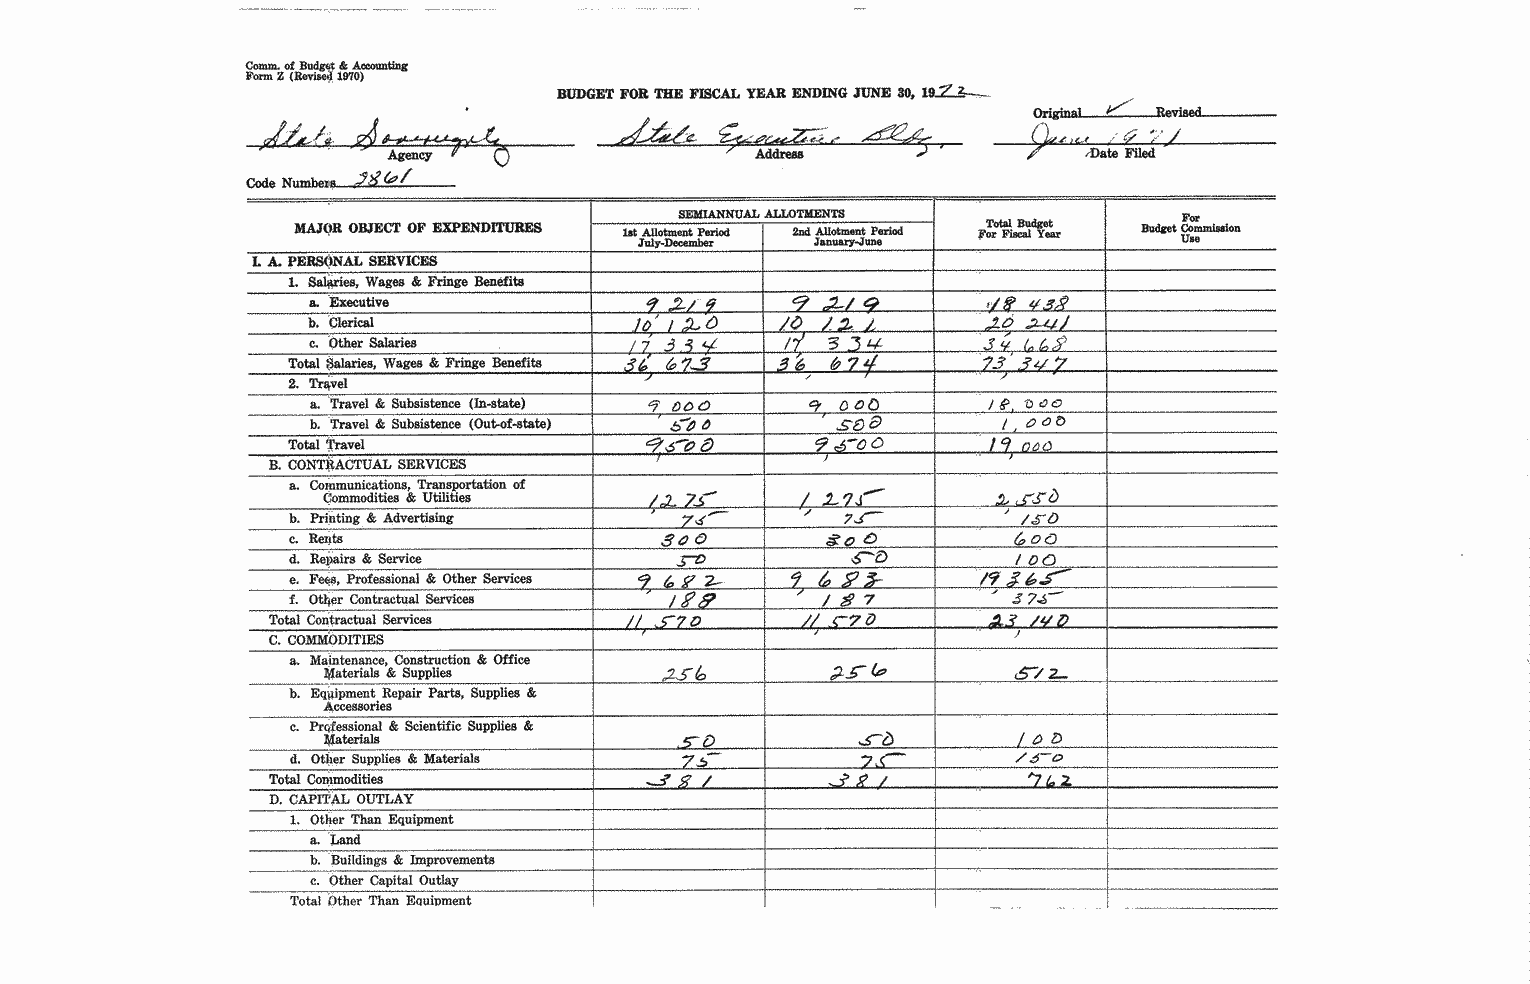 Comm. of Budget & Accounting
Form Z (Revised 1970)
BUDGET FOR THE FISCAL YEAR ENDING JUNE 30, 1972
Original ✓ Revised
State Sovereignty State Executive Bldg. June 1971
Agency Address Date Filed
Code Numbers 3861
MAJOR OBJECT OF EXPENDITURES
SEMIANNUAL ALLOTMENTS
1st Allotment Period
July-December
2nd Allotment Period
January-June
Total Budget
For Fiscal Year
For
Budget Commission
Use
I. A. PERSONAL SERVICES
1. Salaries, Wages & Fringe Benefits
a. Executive 9,219 9,219 18,438
b. Clerical 10,120 10,121 20,241
c. Other Salaries 17,334 17,334 34,668
Total Salaries, Wages & Fringe Benefits 36,673 36,674 73,347
2. Travel
a. Travel & Subsistence (In-state) 9,000 9,000 18,000
b. Travel & Subsistence (Out-of-state) 500 500 1,000
Total Travel 9,500 9,500 19,000
B. CONTRACTUAL SERVICES
a. Communications, Transportation of
Commodities & Utilities 1,275 1,275 2,550
b. Printing & Advertising 75 75 150
c. Rents 300 300 600
d. Repairs & Service 50 50 100
e. Fees, Professional & Other Services 9,682 9,683 19,365
f. Other Contractual Services 188 187 375
Total Contractual Services 11,570 11,570 23,140
C. COMMODITIES
a. Maintenance, Construction & Office
Materials & Supplies 256 256 512
b. Equipment Repair Parts, Supplies &
Accessories
c. Professional & Scientific Supplies &
Materials 50 50 100
d. Other Supplies & Materials 75 75 150
Total Commodities 381 381 762
D. CAPITAL OUTLAY
1. Other Than Equipment
a. Land
b. Buildings & Improvements
c. Other Capital Outlay
Total Other Than Equipment